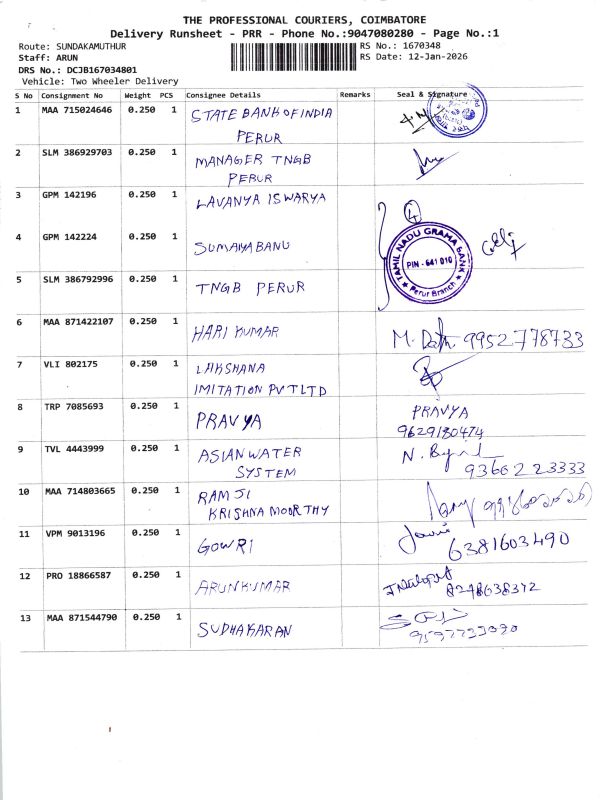 THE PROFESSIONAL COURIERS, COIMBATORE
Delivery Runsheet - PRR - Phone No.:9047080280 - Page No.:1
Route: SUNDAKAMUTHUR
RS No.: 1670348
Staff: ARUN
RS Date: 12-Jan-2026
DRS No.: DCJB167034801
Vehicle: Two Wheeler Delivery
S No Consignment No Weight PCS Consignee Details Remarks Seal & Signature
1 MAA 715024646 0.250 1 STATE BANK OF INDIA
PERUR
2 SLM 386929703 0.250 1 MANAGER TNGB
PERUR
3 GPM 142196 0.250 1 LAVANYA ISWARYA
4
4 GPM 142224 0.250 1 SUMAIYA BANU
TAMIL NADU GRAMA BANK
PIN - 641 010
Perur Branch
5 SLM 386792996 0.250 1 TNGB PERUR
6 MAA 871422107 0.250 1 HARI KUMAR
9952778733
7 VLI 802175 0.250 1 LAKSHANA
IMITATION PVT LTD
8 TRP 7085693 0.250 1 PRAVYA PRAVYA
9629180474
9 TVL 4443999 0.250 1 ASIAN WATER
SYSTEM
9366223333
10 MAA 714803665 0.250 1 RAMJI
KRISHNA MOORTHY
11 VPM 9013196 0.250 1 GOWRI
6381603490
12 PRO 18866587 0.250 1 ARUNKUMAR
13 MAA 871544790 0.250 1 SUDHAKARAN